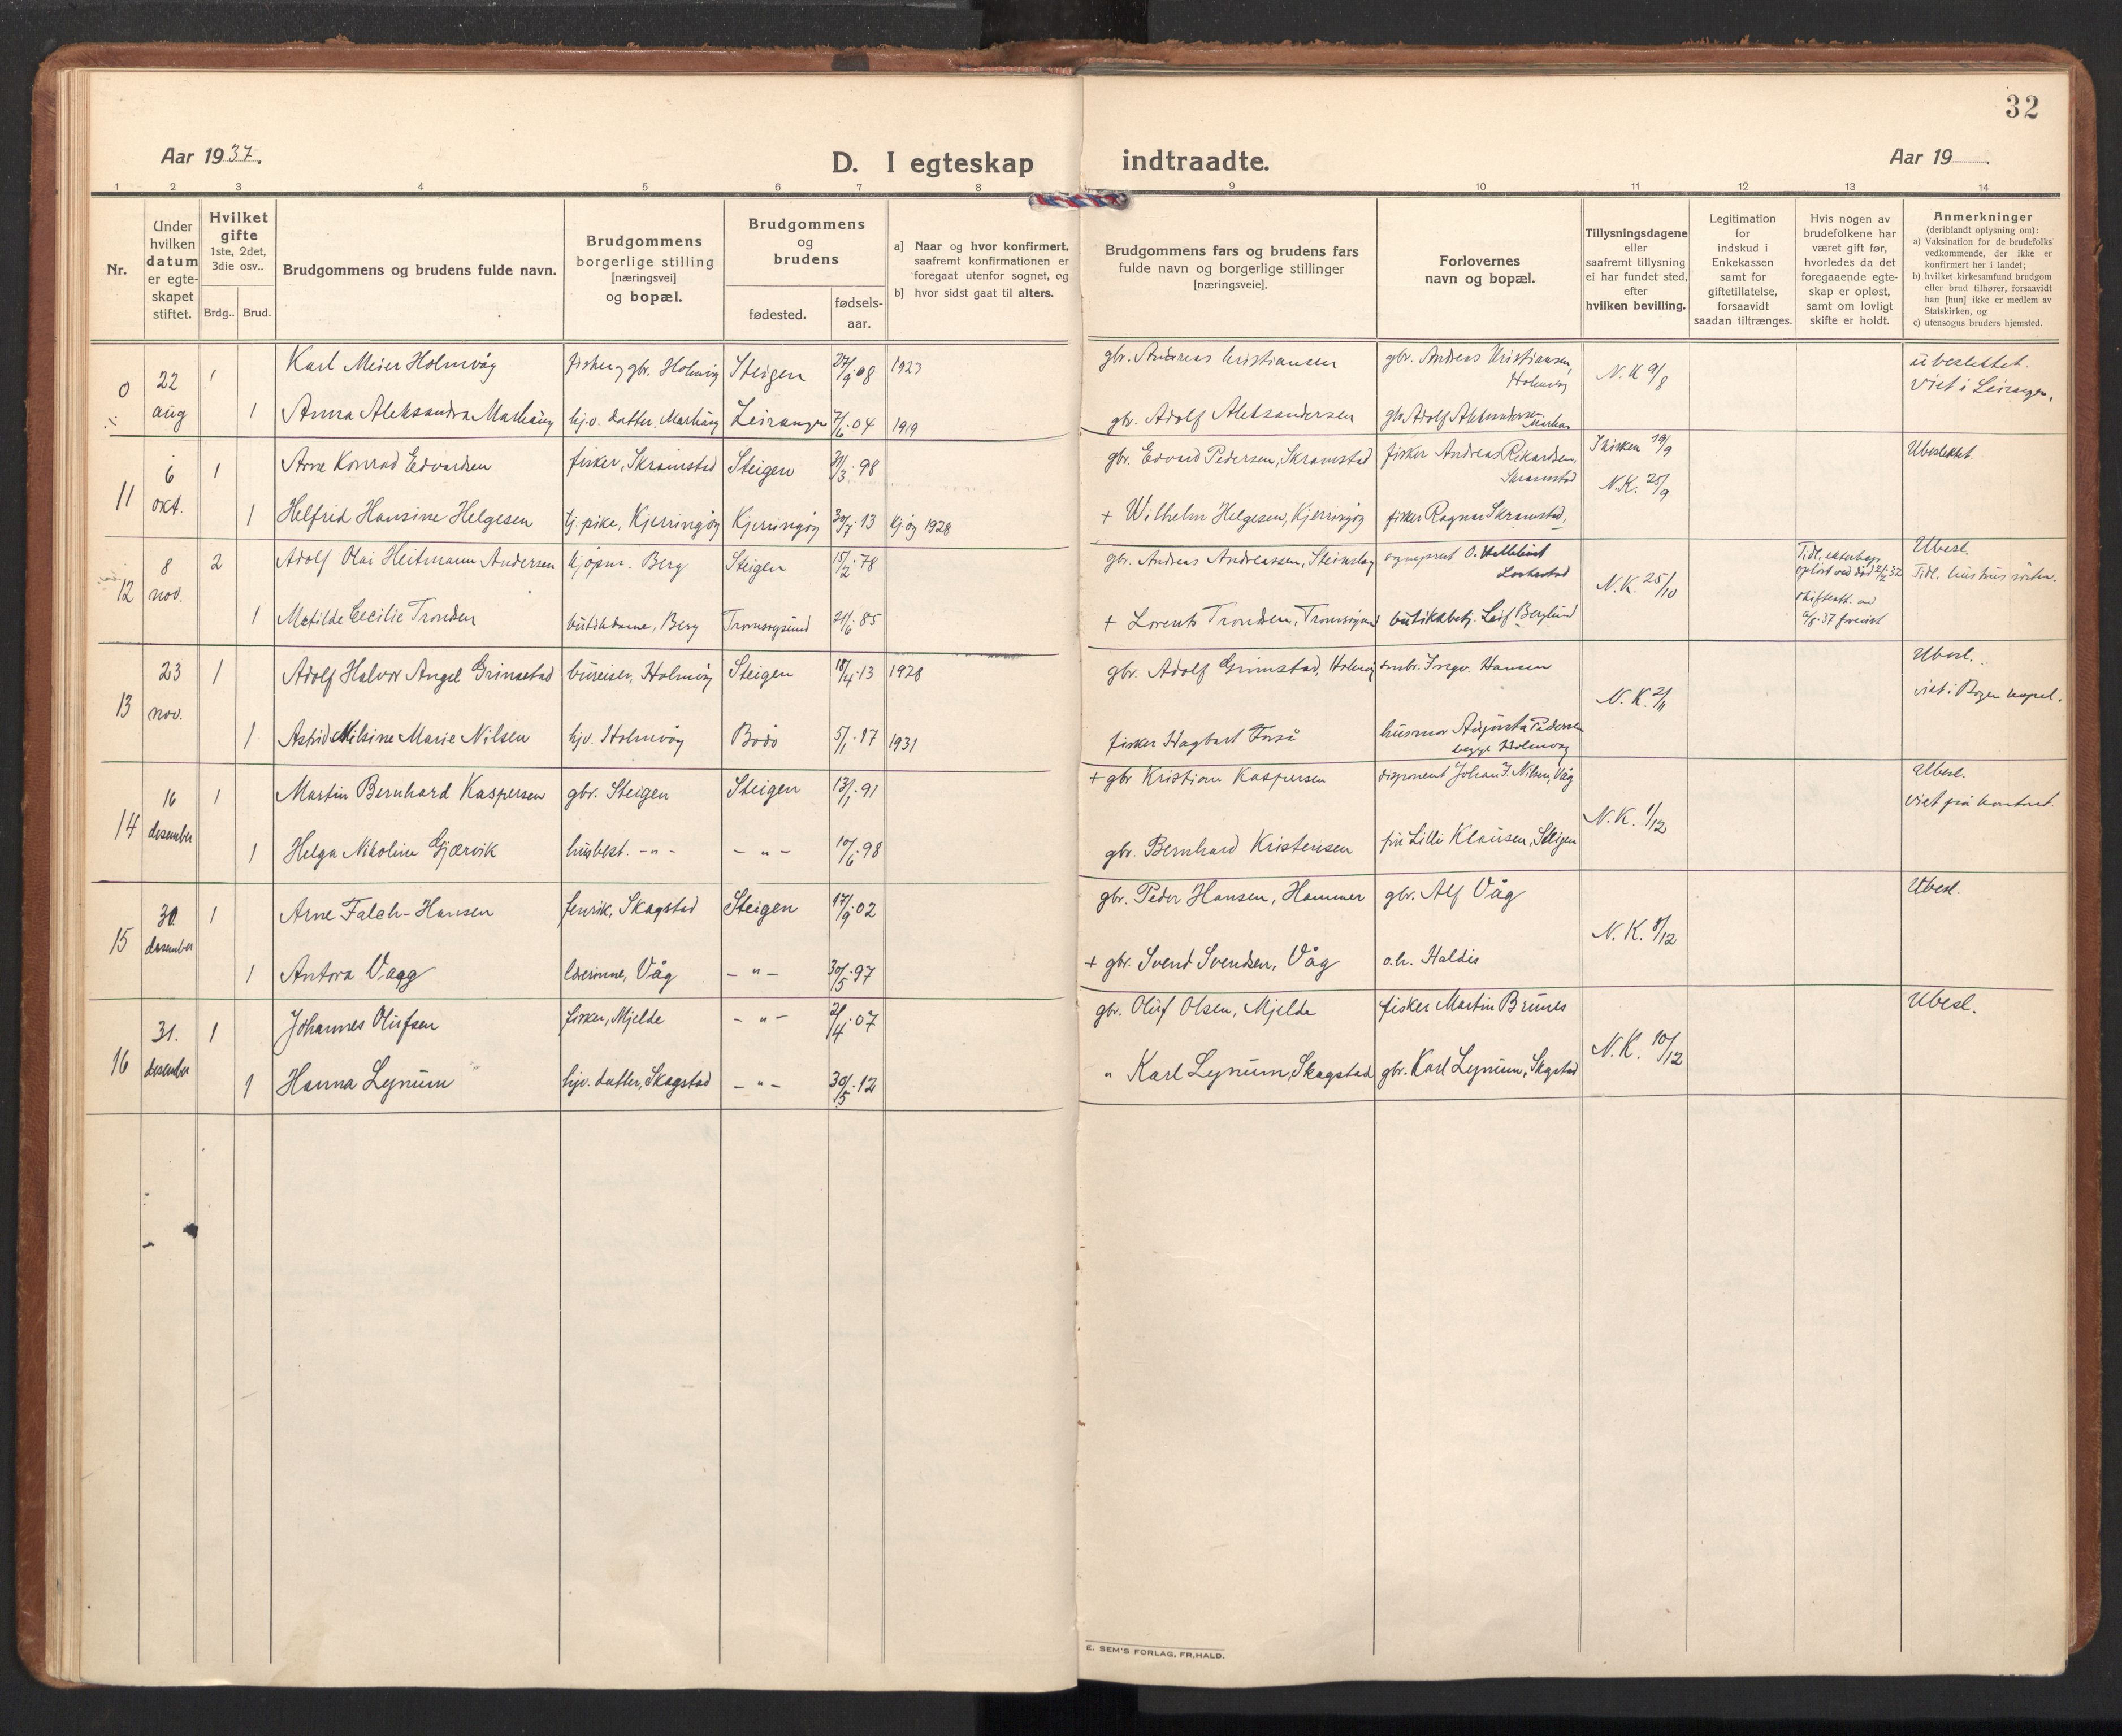 32
Aar 1937.
D. I egteskap
indtraadte.
Aar 19 .
1 2 3 4 5 6 7 8 9 10 11 12 13 14
Nr.
Under hvilken datum er egte-skapet stiftet.
Hvilket gifte
1ste, 2det, 3die osv..
Brdg.. Brud.
Brudgommens og brudens fulde navn.
Brudgommens borgerlige stilling [næringsvei] og bopæl.
Brudgommens og brudens
fødested.
fødsels-aar.
a] Naar og hvor konfirmert, saafremt konfirmationen er foregaat utenfor sognet, og
b] hvor sidst gaat til alters.
Brudgommens fars og brudens fars fulde navn og borgerlige stillinger [næringsveie].
Forlovernes navn og bopæl.
Tillysningsdagene eller saafremt tillysning ei har fundet sted, efter hvilken bevilling.
Legitimation for indskud i Enkekassen samt for giftetillatelse, forsaavidt saadan tiltrænges.
Hvis nogen av brudefolkene har været gift før, hvorledes da det foregaaende egte-skap er opløst, samt om lovligt skifte er holdt.
Anmerkninger (deriblandt oplysning om):
a) Vaksination for de brudefolks vedkommende, der ikke er konfirmert her i landet;
b) hvilket kirkesamfund brudgom eller brud tilhører, forsaavidt han [hun] ikke er medlem av Statskirken, og
c) utensogns bruders hjemsted.
0 22 aug 1 Karl Meier Holmvåg fisker og gbr. Holmvåg Steigen 27/9 08 1923 gbr. Andreas Kristiansen gbr. Andreas Kristiansen, Holmvåg N.K 9/8 ubeslektet. Viet i Leiranger.
1 Anna Aleksandra Markång hj.v. datter, Markång Leiranger 7/6 04 1919 gbr. Adolf Aleksandersen gbr. Adolf Aleksandersen
11 6 okt. 1 Arne Konrad Edvardsen fisker, Skramstad Steigen 31/3 98 gbr. Edvard Pedersen, Skramstad fisker Andreas Rikardsen, Skramstad I kirken 19/9 N.K. 25/9 Ubeslektet.
1 Helfrid Hansine Helgesen tj. pike, Kjerringøy Kjerringøy 30/7 13 Kj øy 1928 + Wilhelm Helgesen, Kjerringøy fisker Ragnar Skramstad,
12 8 nov. 2 Adolf Olai Heitmann Andersen kjøpm. Berg Steigen 15/2 78 gbr. Andreas Andreassen, Steinslag sogneprest O. N.K. 25/10 Tidl. ekteskap opløst ved død Ubesl. Tidl.
1 Matilde Cecilie Trondsen butikdame, Berg Tromsøysund 21/6 85 + Lorents Trondsen, Tromsøysund butikkbetj. Leif Berglund
13 23 nov. 1 Adolf Halvor Angel Grimstad bureiser, Holmvåg Steigen 18/4 13 1928 gbr. Adolf Grimstad, Holmvåg smbr. Ingv. Hansen N.K. 2/11 Ubesl. viet i Bogen kapel.
1 Astrid Nilsine Marie Nilsen hjv. Holmvåg Bodø 5/1 17 1931 fisker Hagbart Forså husmor Augusta Pedersen begge Holmvåg
14 16 desember 1 Martin Bernhard Kaspersen gbr. Steigen Steigen 13/1 91 + gbr Kristian Kaspersen disponent Johan J. Nilsen, Våg N.K. 1/12 Ubesl. viet på kontoret.
1 Helga Nikoline Gjærvik husbest. - " - - " - 10/6 98 gbr. Bernhard Kristensen frk Lilli Klausen, Steigen
15 30. desember 1 Arne Falch-Hansen fenrik, Skagstad Steigen 17/9 02 gbr. Peder Hansen, Hammer gbr. Alf Våg N.K. 8/12 Ubesl.
1 Antora Vagg lærerinne, Våg - " - 30/5 97 + gbr. Svend Svendsen, Våg o.h. Haldis
16 31. desember 1 Johannes Olufsen fisker, Mjelde - " - 21/4 07 gbr. Oluf Olsen, Mjelde fisker Martin Brunes N.K. 10/12 Ubesl.
1 Hanna Lynum hjv. datter, Skagstad - " - 30/5 12 " Karl Lynum, Skagstad gbr. Karl Lynum, Skagstad
E. SEM'S FORLAG, FR.HALD.